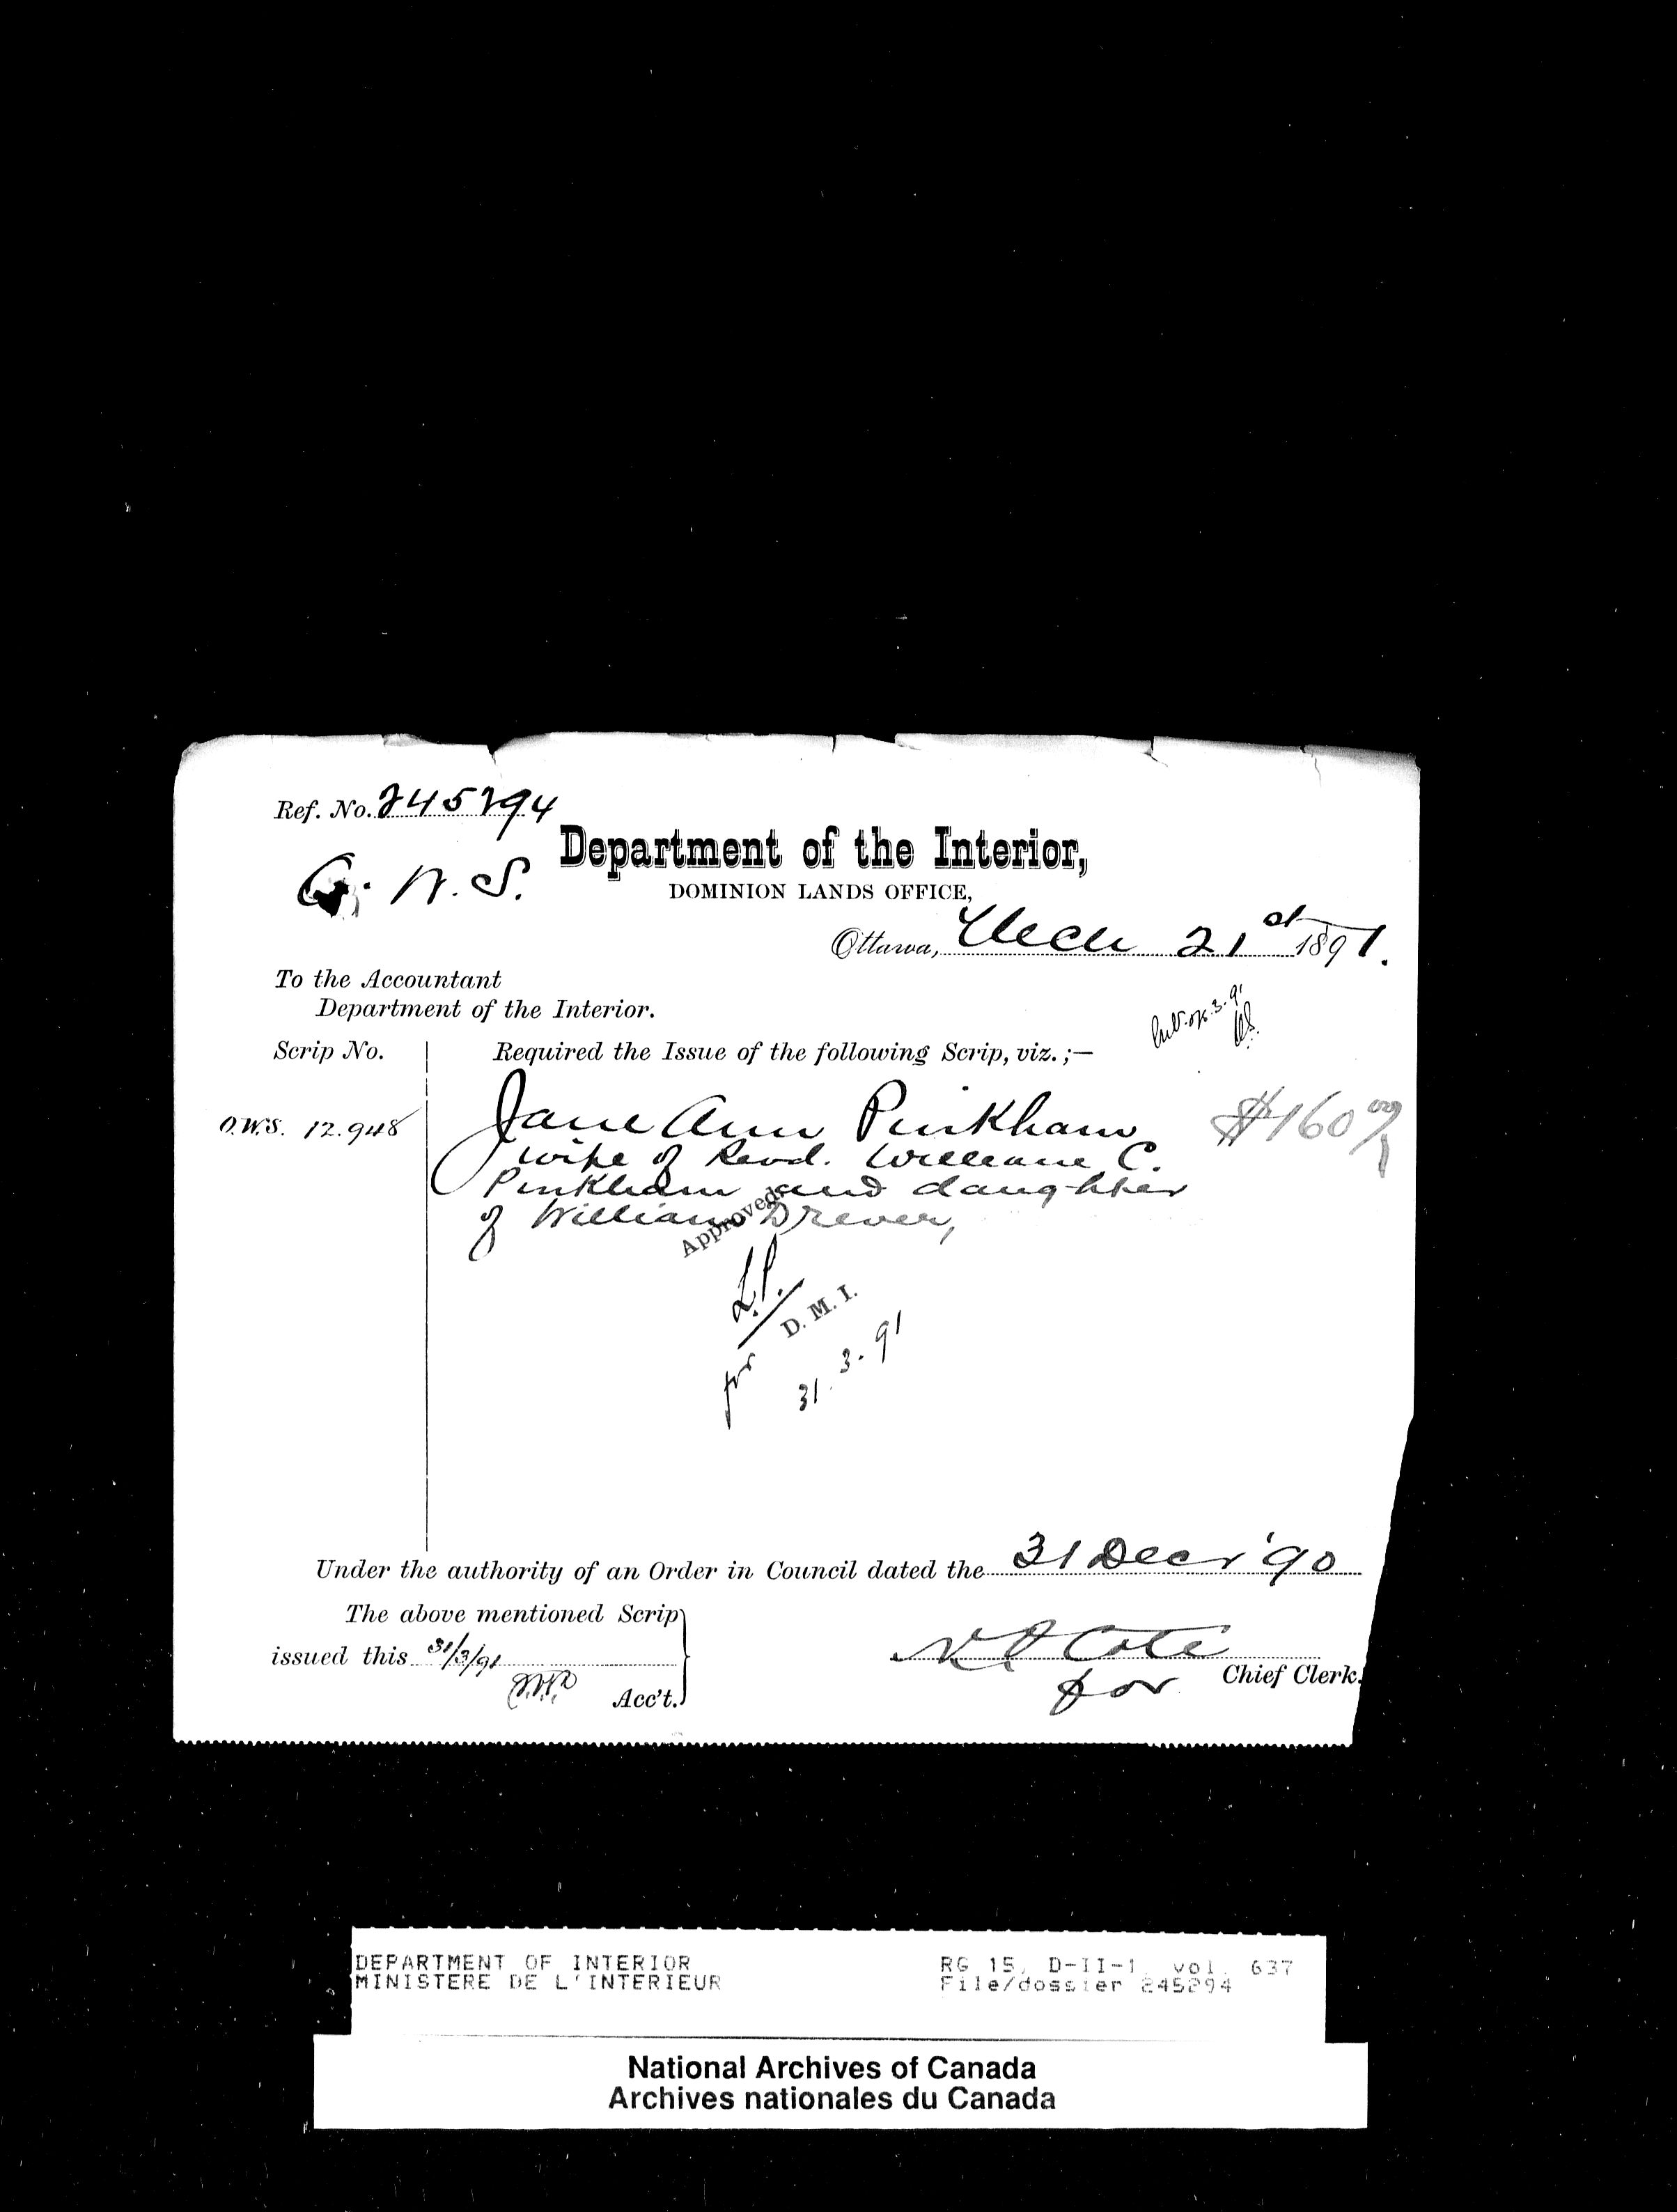 Ref. No. 245294
Department of the Interior,
DOMINION LANDS OFFICE,
Ottawa, 21st 1891.
To the Accountant
Department of the Interior.
Scrip No.
Required the Issue of the following Scrip, viz. ;—
O.W.S. 12.948
Jane Ann Pinkham $160 00
wife of Revd. William C.
Pinkham and daughter
of William Drever,
Approved,
for D. M. I.
31. 3. 91
Under the authority of an Order in Council dated the 31 Decr '90
The above mentioned Scrip
issued this 31/3/91
Acc't.
N O Coté
for Chief Clerk.
DEPARTMENT OF INTERIOR
MINISTERE DE L'INTERIEUR
RG 15, D-II-1, vol. 637
File/dossier 245294
National Archives of Canada
Archives nationales du Canada